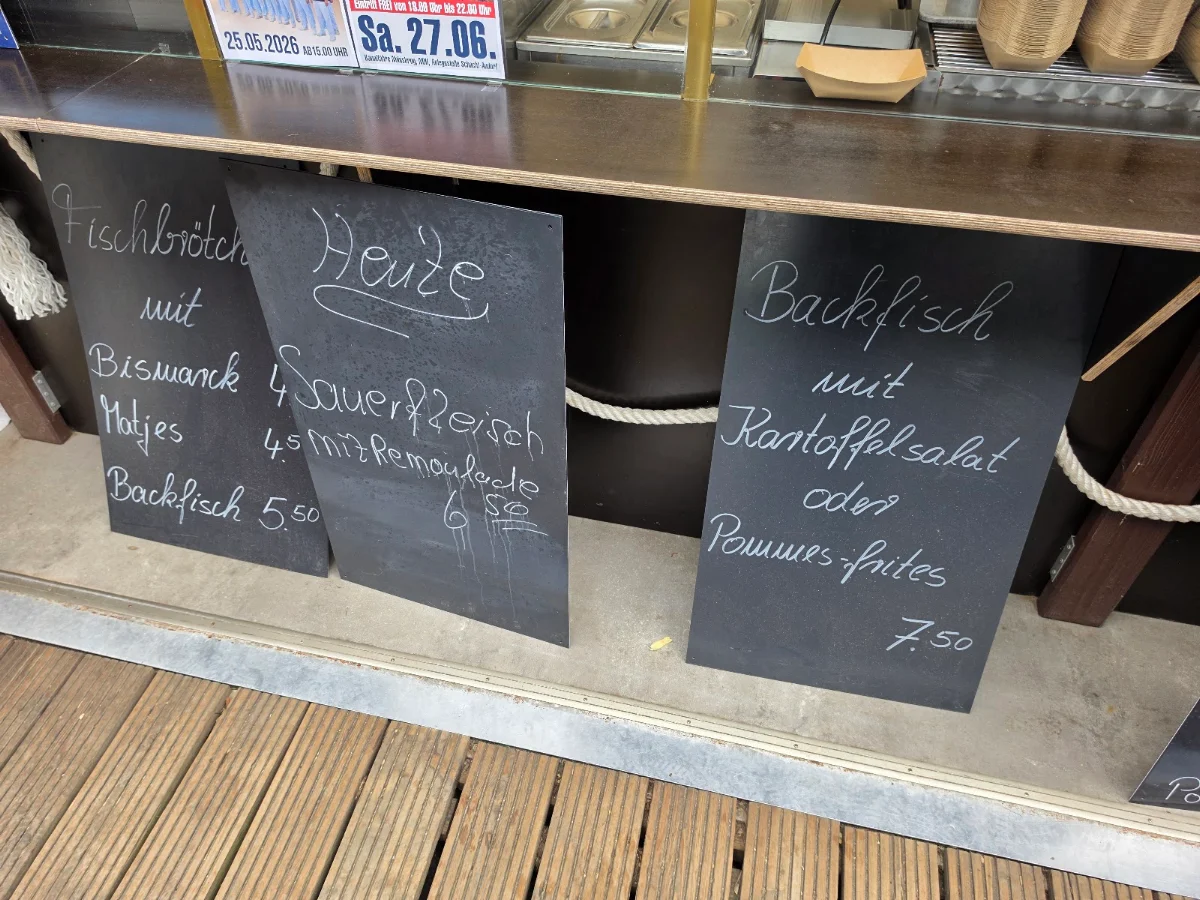 25.05.2026 AB 15.00 UHR
Eintritt FREI von 18.00 Uhr bis 22.00 Uhr
Sa. 27.06.
Fischbrötch
mit
Bismarck 4
Matjes 4.5
Backfisch 5.50
Heute
Sauerfleisch
mit Remoulade
6 50
Backfisch
mit
Kartoffelsalat
oder
Pommes-frites
7.50
Po